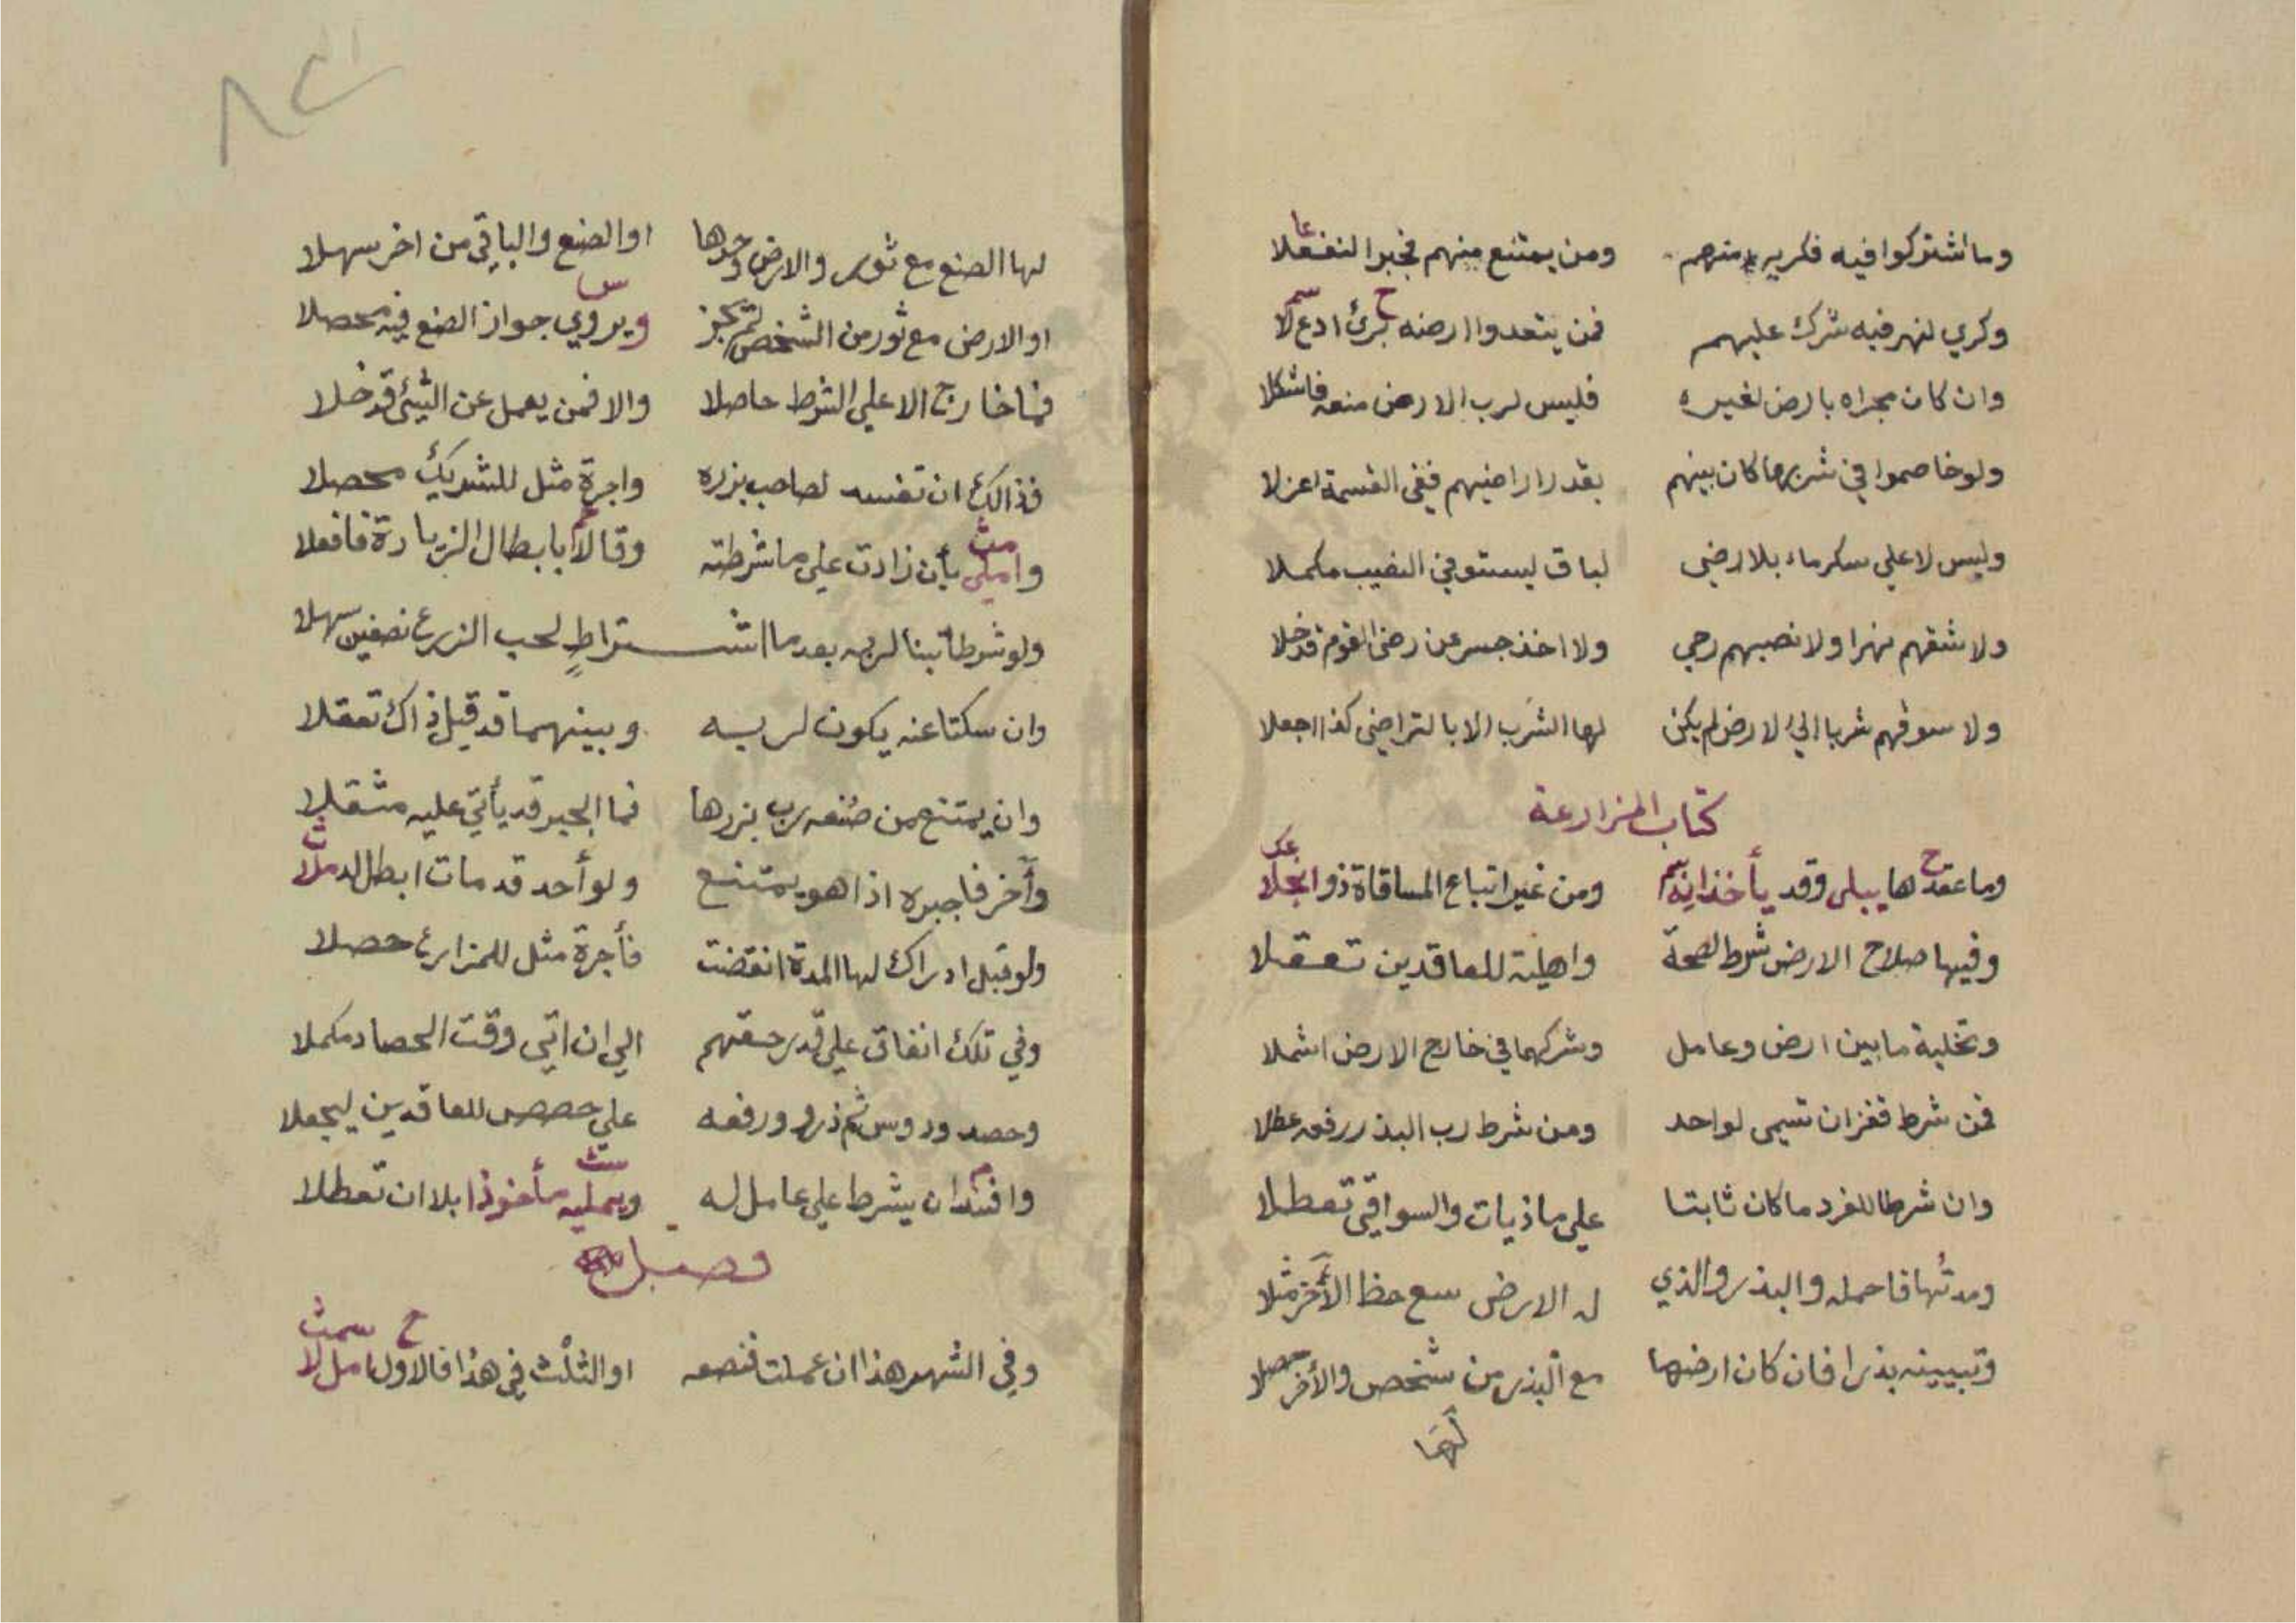 وما اشتركوا فيه فكريه منهم ومن يمتنع منهم فجبرا لنفعلا
وكري لنهر فيه شرك عليهم فمن يتعدوا ارضه برئ ادع لا
وان كان مجراه بارض لغيره فليس لرب الارض منعه فاشكلا
ولو خاصموا في شربها كان بينهم بقدر اراضيهم ففي القسمة اعزلا
وليس لاعلى سكر ماء بلا رضى لباق ليستوفي النصيب مكملا
ولا شقهم نهرا ولا نصبهم رحي ولا اخذ جسر عن رضى القوم قد خلا
ولا سوقهم شربا الى لارض لم يكن لها الشرب الا بالتراضي كذا اجعلا
كتاب المزارعة
وما عقد ها يبلى وقد يأخذانه ومن غير اتباع المساقاة ذو انجلا
وفيها صلاح الارض شرط لصحة واهلية للعاقدين تعقلا
وتخلية ما بين ارض وعامل وشركهما في خارج الارض اشملا
فمن شرط قفزان تسمى لواحد ومن شرط رب البذر رفعه عطلا
وان شرطا للفرد ما كان ثابتا على ماذيات والسواقي تعطلا
ومدتها فاحمله والبذر والذي له الارض سع حظ الأخر مثلا
وتبيينه بذرا فان كان ارضها مع البذر من شخص والأخر حصلا
لها
٨٢
لها الصنع مع ثور والارض وحدها او الصنع والباقي من اخر سهلا
او الارض مع ثور من الشخص لم تجز ويروي جواز الصنع فيه محصلا
فما خارج الا على الشرط حاصلا والا فمن يعمل عن الشئ قد خلا
فذالك ان تفسد لصاحب بزره واجرة مثل للشريك محصلا
وامكن بأن زادت على ما شرطته وقالا بابطال الزيادة فافعلا
ولو شرطا تبنا لربه بعد ما اشتراط لحب الزرع نصفين سهلا
وان سكتا عنه يكون لربه وبينهما قد قيل ذاك تعقلا
وان يمتنع من صنعه رب بزرها فما الجبر قد يأتي عليه مثقلا
وأخر فاجبره اذا هو يمتنع ولو أحد قد مات ابطل لد ملا
ولو قبل ادراك لها المدة انقضت فأجرة مثل للمزارع حصلا
وفي تلك انفاق على قدر حقهم الى ان اتى وقت الحصاد مكملا
وحصد ودوس ثم ذرو ورفعه على حصص للعاقدين ليجعلا
وافسد ان يشرط على عامل له ويمليه مأخوذا بلا ان تعطلا
فصل
وفي الشهر هذا ان عملت فنصفه او الثلث في هذا فالاول امل لا